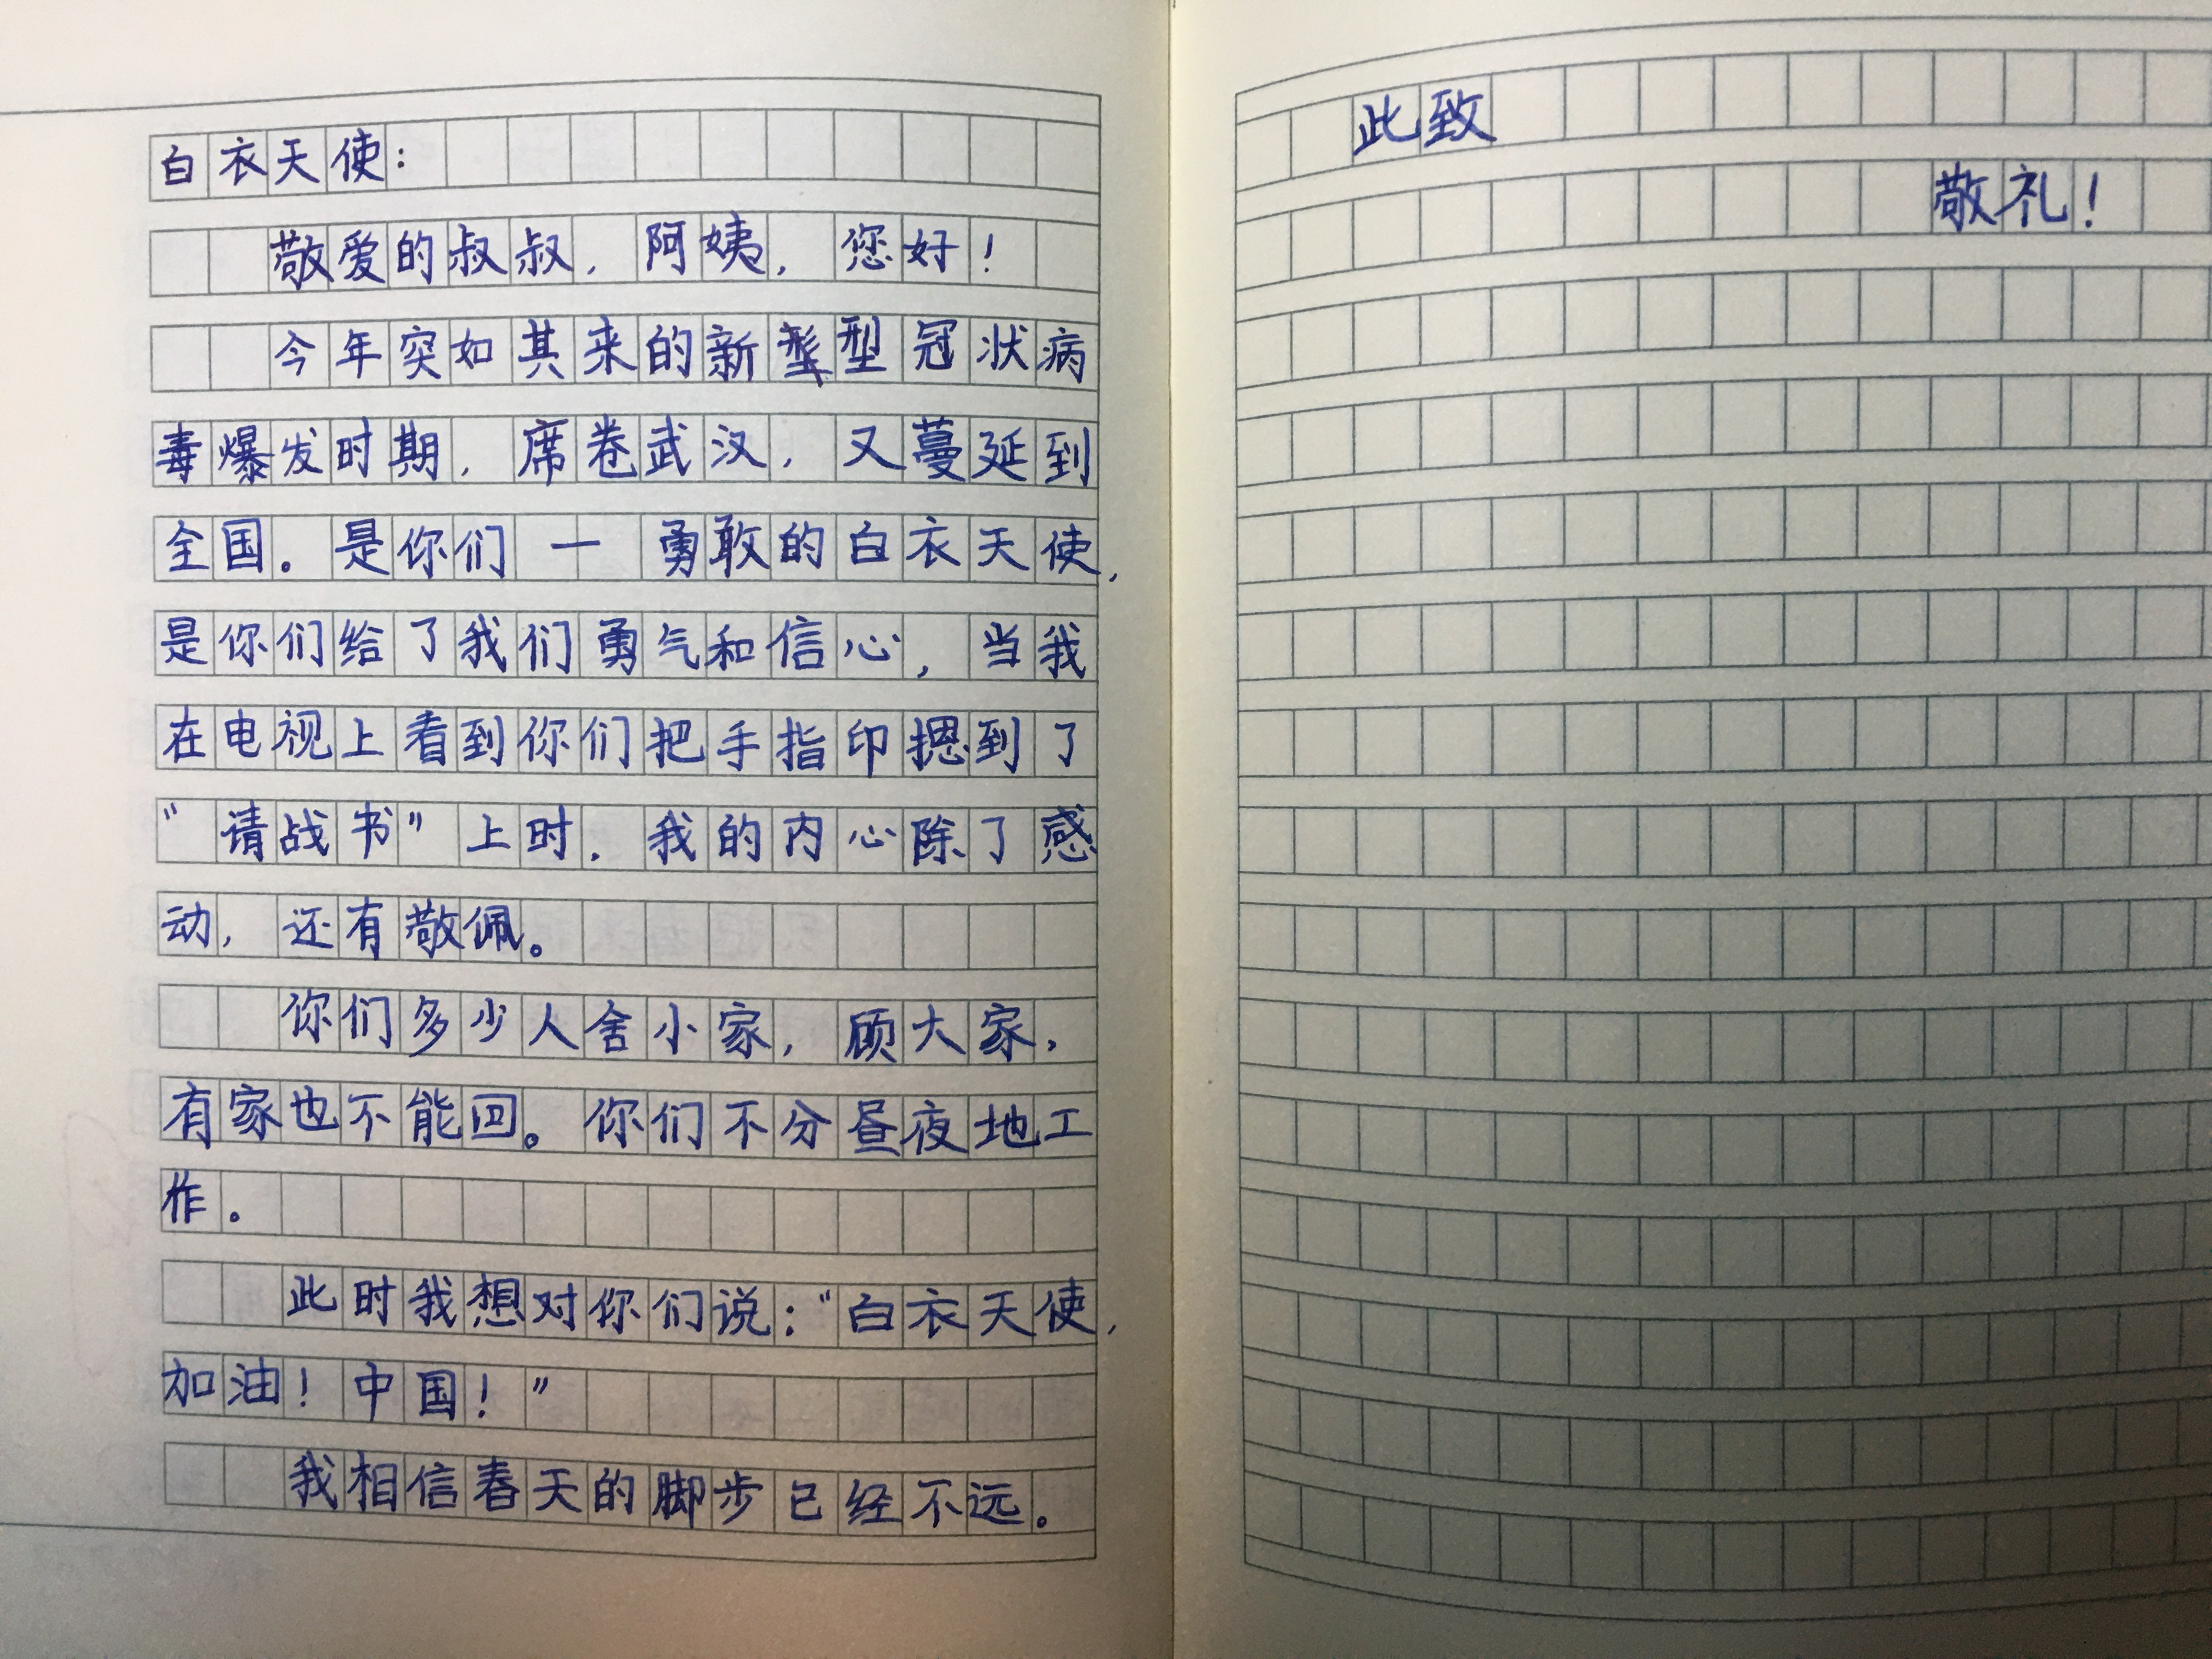 白衣天使：
敬爱的叔叔，阿姨，您好！
今年突如其来的新型冠状病
毒爆发时期，席卷武汉，又蔓延到
全国。是你们 — 勇敢的白衣天使，
是你们给了我们勇气和信心，当我
在电视上看到你们把手指印摁到了
“请战书”上时，我的内心除了感
动，还有敬佩。
你们多少人舍小家，顾大家，
有家也不能回。你们不分昼夜地工
作。
此时我想对你们说：“白衣天使，
加油！中国！”
我相信春天的脚步已经不远。
此致
敬礼！